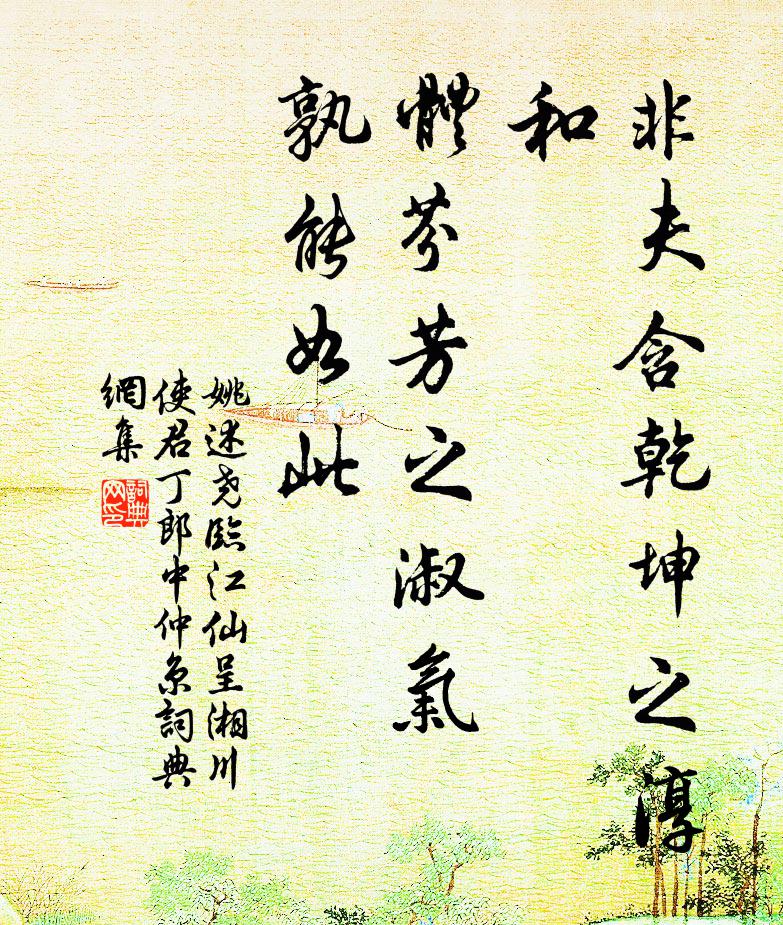 非夫含乾坤之淳
和
體芬芳之淑氣
孰能如此
姚述堯臨江仙呈湘川
使君丁郎中仲京詞典
網集
詞典网印